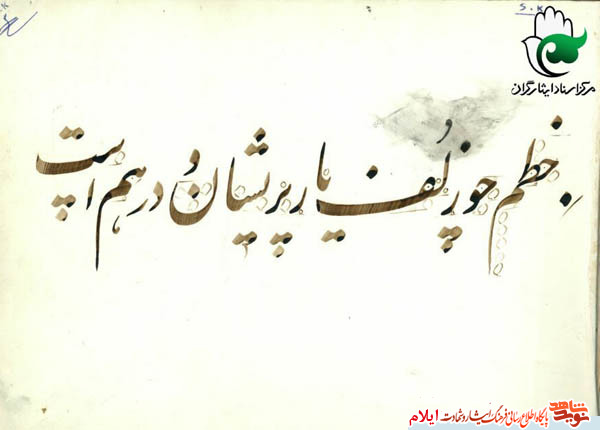 S.K
مرکز اسناد ایثارگران
خطم چو زلف یار پریشان و درهم است
نوید شاهد پایگاه اطلاع رسانی فرهنگ ایثار و شهادت ایلام